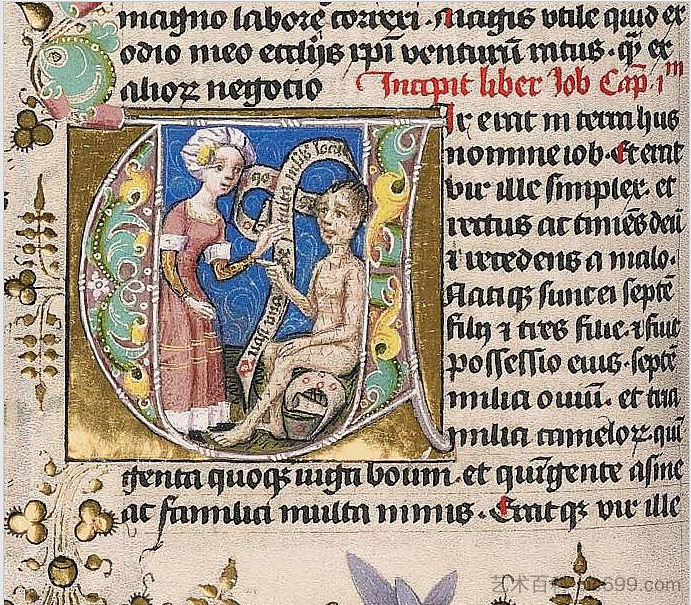 magno labore correxi. Magis vtile quid ex
odio meo eccl̄ijs xp̄i venturum ratus. q̄ ex
alioꝝ negocio Incipit liber Job Cap. i.m
Ir erat in terra hus
nomine iob. Et erat
vir ille simplex. et
rectus ac timēs deū
⁊ recedens a malo.
Natiqꝫ sunt ei septē
filij ⁊ tres filie. ⁊ fuit
possessio eius. septē
milia ouiū. et tria
milia cameloꝝ. quī
genta quoqꝫ iuga boum. et quīgente asine
ac familia multa nimis. Eratqꝫ vir ille
699.com